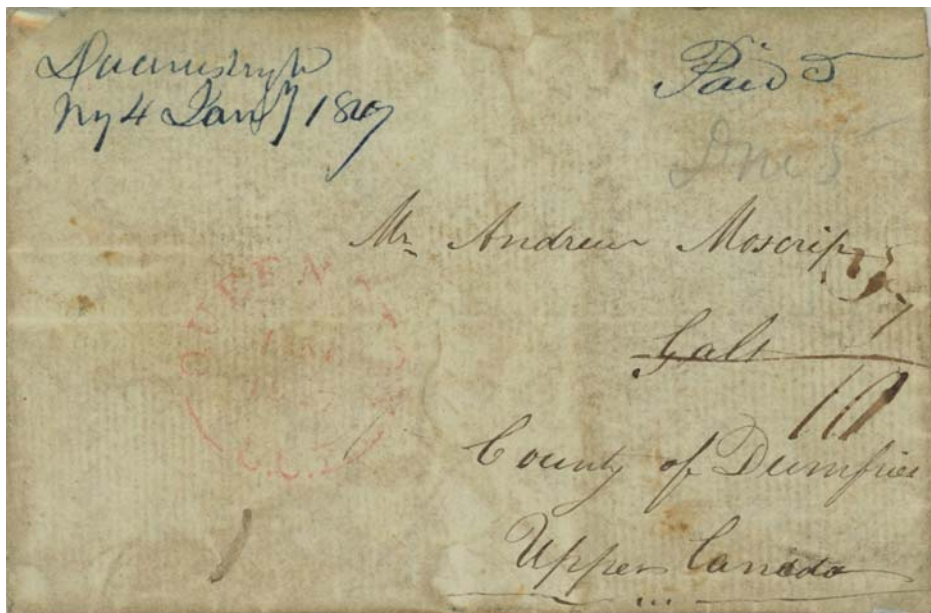 Duanesburgh
Ny 4 Jany 1847
Paid 5
Due 5
Mr Andrew Moscrip
Galt
County of Dumfries
Upper Canada
QUEENSTON
JAN
U.C.